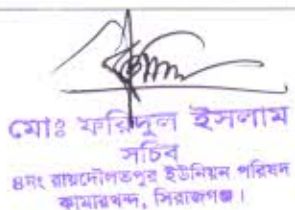 মোঃ ফরিদুল ইসলাম
সচিব
৪নং রায়দৌলতপুর ইউনিয়ন পরিষদ
কামারখন্দ, সিরাজগঞ্জ।